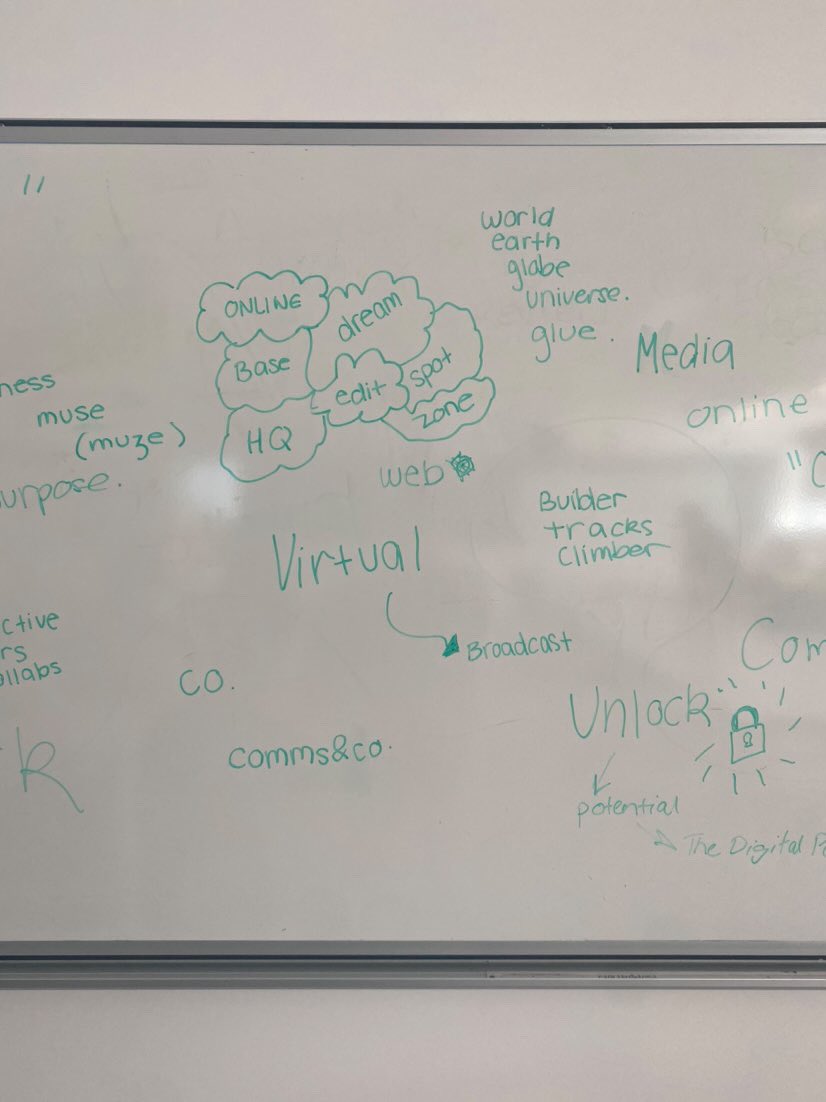 "
world
earth
globe
universe.
glue.
ONLINE
dream
Base
edit
spot
zone
HQ
Media
online
"C
ness
muse
(muze)
urpose.
web
Builder
tracks
climber
Virtual
Broadcast
ctive
rs
ollabs
k
co.
comms&co.
Com
Unlock
potential
The Digital P